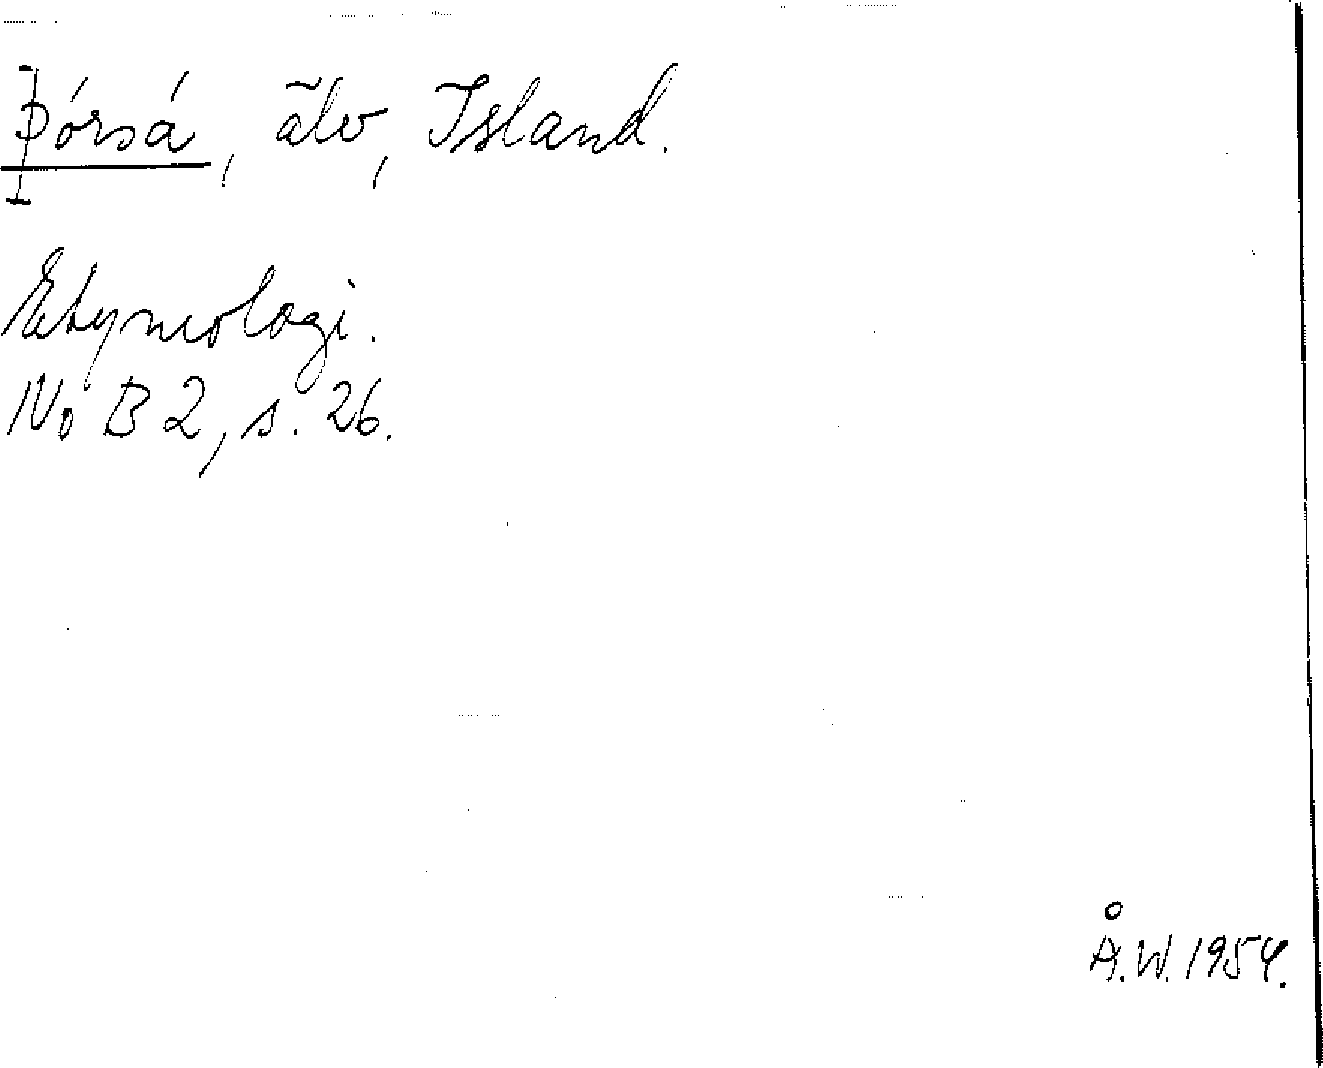 Þórsá, älv, Island.
Etymologi.
NoB 2, s. 26.
Å.W. 1954.